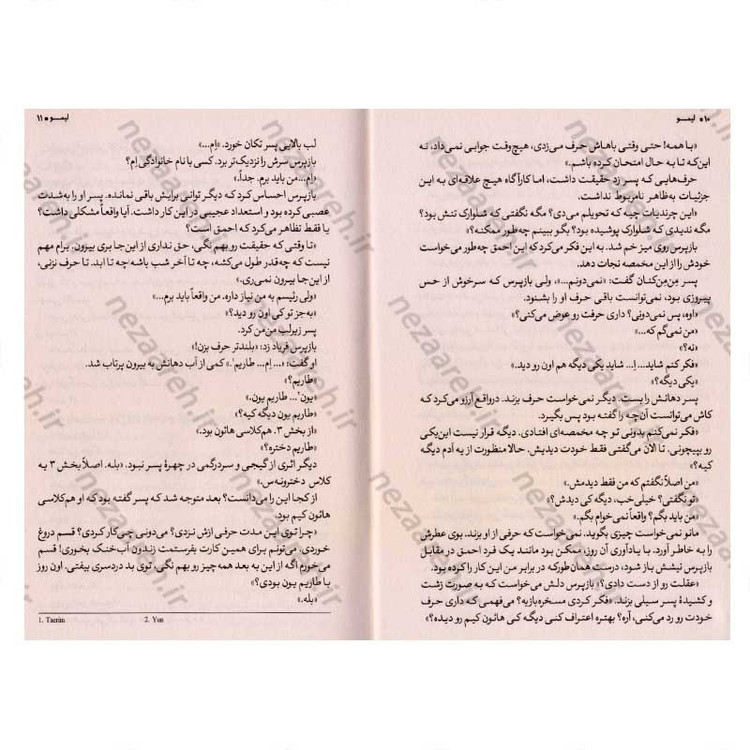 ۱۰ • لیمو
«با همه! حتی وقتی باهاش حرف می‌زدی، هیچ‌وقت جوابی نمی‌داد، نه
این‌که تا به حال امتحان کرده باشم.»
حرف‌هایی که پسر زد حقیقت داشت، اما کارآگاه هیچ علاقه‌ای به این
جزئیات به‌ظاهر نامربوط نداشت.
«این چرندیات چیه که تحویلم می‌دی؟ مگه نگفتی که شلوارک تنش بود؟
مگه ندیدی که شلوارک پوشیده بود؟ بگو ببینم چه‌طور ممکنه؟»
بازپرس روی میز خم شد. به این فکر می‌کرد که این احمق چه‌طور می‌خواست
خودش را از این مخمصه نجات دهد.
پسر مِن‌مِن‌کنان گفت: «نمی‌دونم...»، ولی بازپرس که سرخوش از حس
پیروزی بود، نمی‌توانست باقی حرف او را بشنود.
«اوه، پس نمی‌دونی؟ داری حرفت رو عوض می‌کنی؟»
«من نمی‌گم که...»
«نه؟»
«فکر کنم شاید... اِ... شاید یکی دیگه هم اون رو دید.»
«یکی دیگه؟»
پسر دهانش را بست. دیگر نمی‌خواست حرف بزند. درواقع آرزو می‌کرد که
کاش می‌توانست آن‌چه را گفته بود پس بگیرد.
«فکر نمی‌کنم بدونی تو چه مخمصه‌ای افتادی. دیگه قرار نیست این‌یکی
رو بپیچونی. تا الان می‌گفتی فقط خودت دیدیش. حالا منظورت از یه آدم دیگه
کیه؟»
«من اصلاً نگفتم که من فقط دیدمش.»
«تو نگفتی؟ خیلی خب، دیگه کی دیدش؟»
«من باید بگم؟ واقعاً نمی‌خوام بگم.»
مانو نمی‌خواست چیزی بگوید. نمی‌خواست که حرفی از او بزند. بوی عطرش
را به خاطر آورد. با یادآوری آن روز، ممکن بود مانند یک فرد احمق در مقابل
بازپرس نیشش باز شود، درست همان‌طورکه در برابر من این کار را کرده بود.
«عقلت رو از دست دادی؟» بازپرس دلش می‌خواست که به صورت زشت
و کشیدهٔ پسر سیلی بزند. «فکر کردی مسخره‌بازیه؟ می‌فهمی که داری حرف
خودت رو رد می‌کنی، آره؟ بهتره اعتراف کنی دیگه کی هائون کیم رو دیده؟»
لیمو • ۱۱
لب بالایی پسر تکان خورد. «اِم...»
بازپرس سرش را نزدیک‌تر برد. کسی با نام خانوادگی اِم؟
«اِم... من باید برم. جداً.»
بازپرس احساس کرد که دیگر توانی برایش باقی نمانده. پسر او را به‌شدت
عصبی کرده بود و استعداد عجیبی در این کار داشت. آیا واقعاً مشکلی داشت؟
یا فقط تظاهر می‌کرد که احمق است؟
«تا وقتی که حقیقت رو بهم نگی، حق نداری از این‌جا بری بیرون. برام مهم
نیست که چه‌قدر طول می‌کشه، چه تا آخر شب باشه چه تا ابد. تا حرف نزنی،
از این‌جا بیرون نمی‌ری.»
«ولی رئیسم به من نیاز داره. من واقعاً باید برم...»
«به‌جز تو کی اون رو دید؟»
پسر زیرلب من‌من کرد.
بازپرس فریاد زد: «بلندتر حرف بزن!»
او گفت: «... اِم... طاریم۱.» کمی از آب دهانش به بیرون پرتاب شد.
«طاریم؟»
«یون۲... طاریم یون.»
«طاریم یون دیگه کیه؟»
«از بخش ۳. هم‌کلاسی هائون بود.»
«طاریم دختره؟»
دیگر اثری از گیجی و سردرگمی در چهرهٔ پسر نبود. «بله. اصلاً بخش ۳ یه
کلاس دخترونه‌س.»
از کجا این را می‌دانست؟ بعد متوجه شد که پسر گفته بود که او هم‌کلاسی
هائون کیم بود.
«چرا توی این مدت حرفی ازش نزدی؟ می‌دونی چی‌کار کردی؟ قسم دروغ
خوردی. می‌تونم برای همین کارت بفرستمت زندون آب‌خنک بخوری! قسم
می‌خورم اگه از این به بعد همه‌چیز رو بهم نگی، توی بد دردسری بیفتی. اون روز
با طاریم یون بودی؟»
«بله.»
1. Taerim 2. Yun
nezaareh.ir